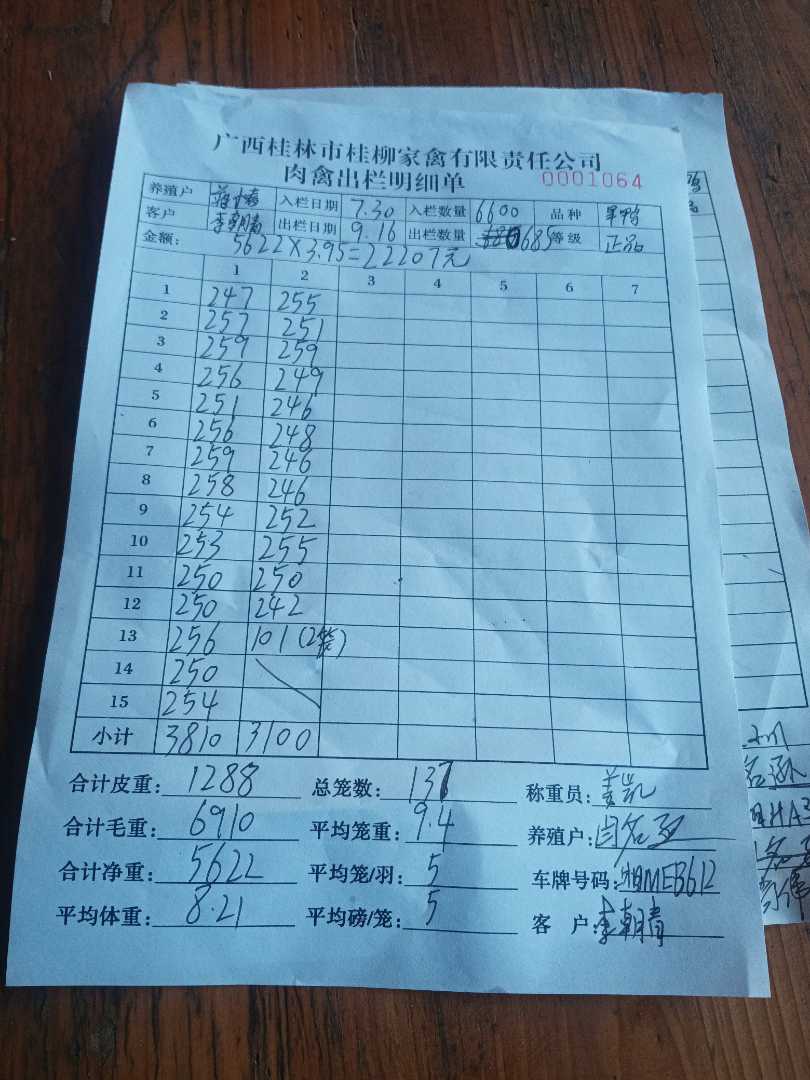 广西桂林市桂柳家禽有限责任公司
肉禽出栏明细单 0001064
养殖户 入栏日期 7.30 入栏数量 6600 品种
客户 李朝青 出栏日期 9.16 出栏数量 685 等级 正品
金额: 5622×3.95=22207元
1 2 3 4 5 6 7
1 247 255
2 257 251
3 259 259
4 256 249
5 251 246
6 256 248
7 259 246
8 258 246
9 254 252
10 253 255
11 250 250
12 250 242
13 256 101(2笼)
14 250
15 254
小计 3810 3100
合计皮重: 1288 总笼数: 137 称重员:
合计毛重: 6910 平均笼重: 9.4 养殖户:
合计净重: 5622 平均笼/羽: 5 车牌号码: 湘MEB612
平均体重: 8.21 平均磅/笼: 5 客 户: 李朝青